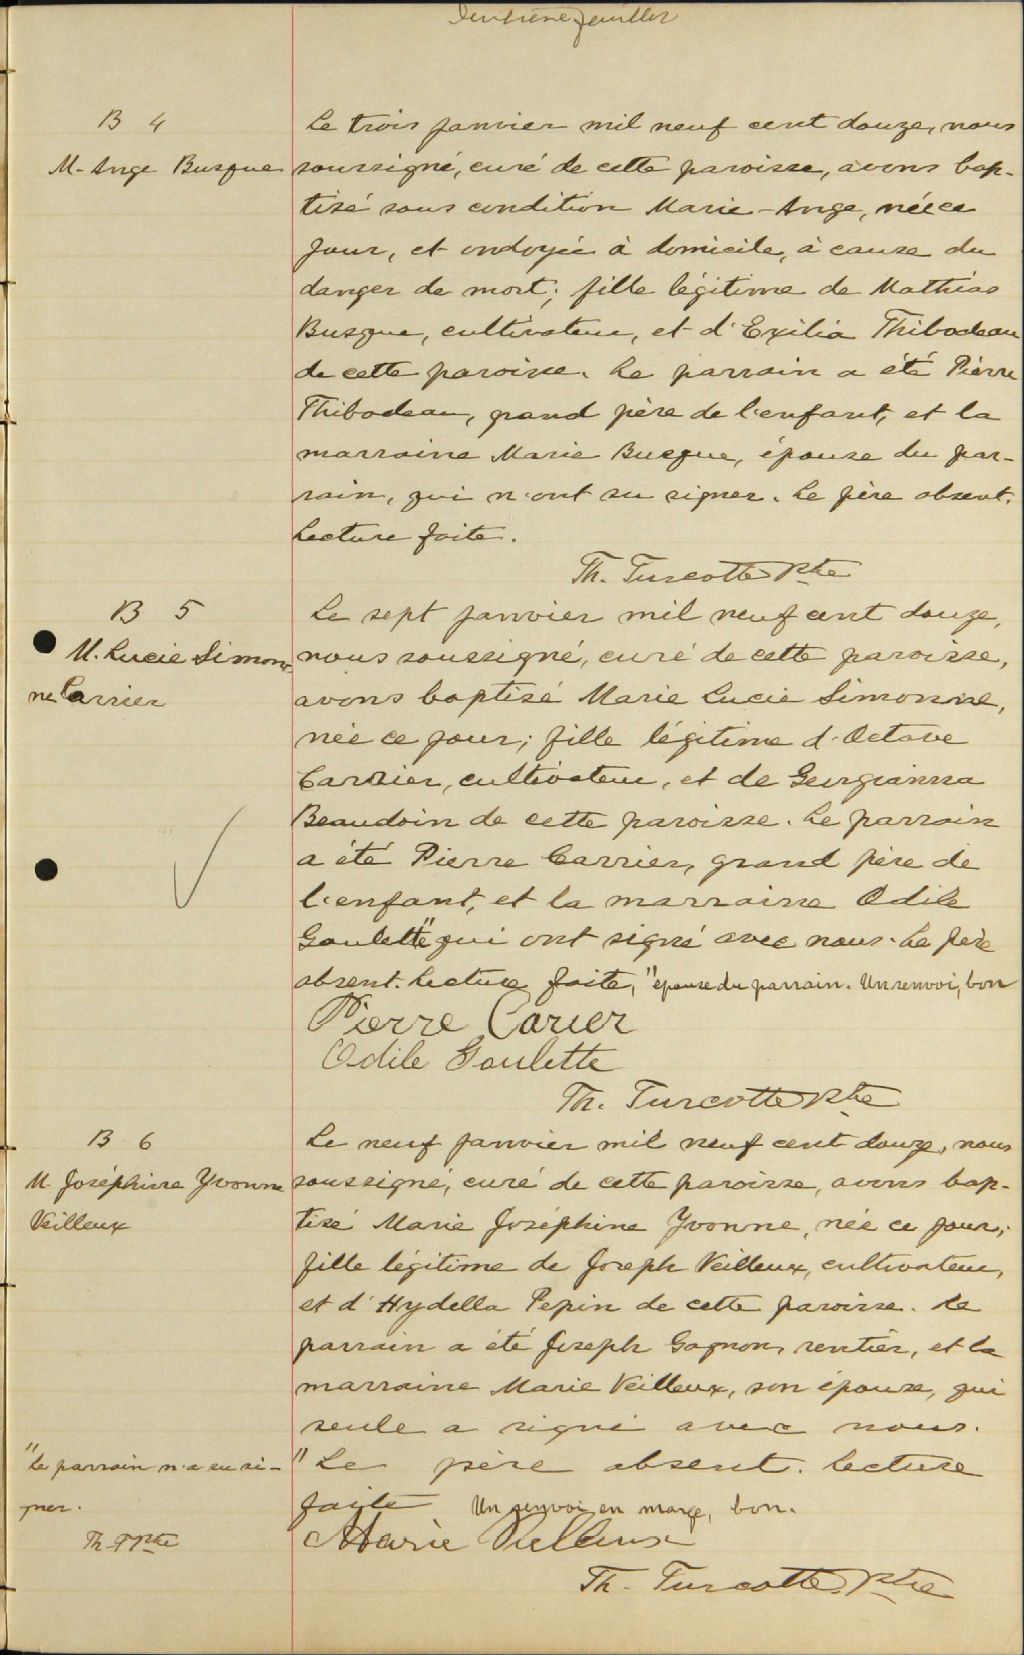 Deuxième feuillet
B 4
M. Ange Busque
Le trois janvier mil neuf cent douze, nous
soussigné, curé de cette paroisse, avons bap-
tisé sous condition Marie-Ange, née ce
jour, et ondoyée à domicile, à cause du
danger de mort; fille légitime de Mathias
Busque, cultivateur, et d'Exilia Thibodeau
de cette paroisse. Le parrain a été Pierre
Thibodeau, grand père de l'enfant, et la
marraine Marie Busque, épouse du par-
rain, qui n'ont su signer. Le père absent.
Lecture faite.
Th. Turcotte Ptre
B 5
M. Lucie Simon
ne Carrier
Le sept janvier mil neuf cent douze,
nous soussigné, curé de cette paroisse,
avons baptisé Marie Lucie Simonne,
née ce jour; fille légitime d'Octave
Carrier, cultivateur, et de Georgianna
Beaudoin de cette paroisse. Le parrain
a été Pierre Carrier, grand père de
l'enfant, et la marraine Odile
Goulette" qui ont signé avec nous. Le père
absent. Lecture faite, "épouse du parrain. Un renvoi, bon
Pierre Carier
Odile Goulette
Th. Turcotte Ptre
B 6
M. Joséphine Yvonne
Veilleux
Le neuf janvier mil neuf cent douze, nous
soussigné, curé de cette paroisse, avons bap-
tisé Marie Joséphine Yvonne, née ce jour;
fille légitime de Joseph Veilleux, cultivateur,
et d'Hydella Pepin de cette paroisse. Le
parrain a été Joseph Gagnon, rentier, et la
marraine Marie Veilleux, son épouse, qui
seule a signé avec nous.
"Le père absent. Lecture
faite Un renvoi en marge, bon.
"Le parrain n'a su si-
gner.
Th. T Ptre
Marie Vielleux
Th. Turcotte Ptre